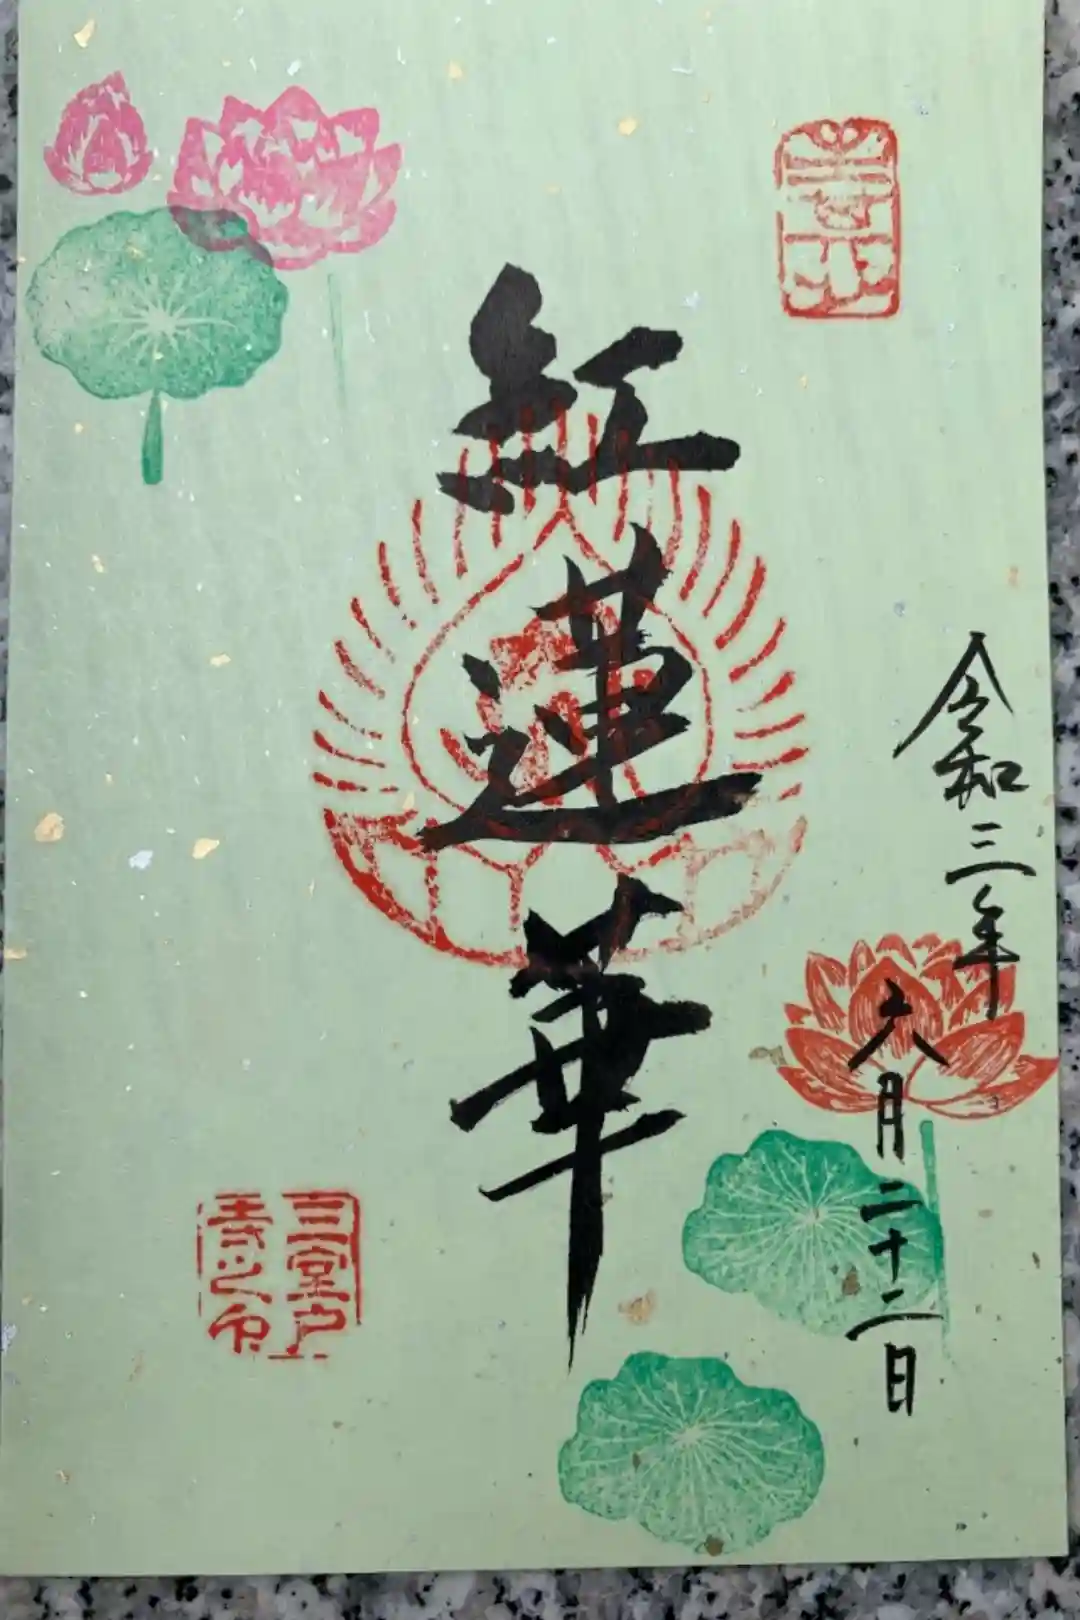 令和三年
六月二十二日
紅蓮華
三室戸
寺之印